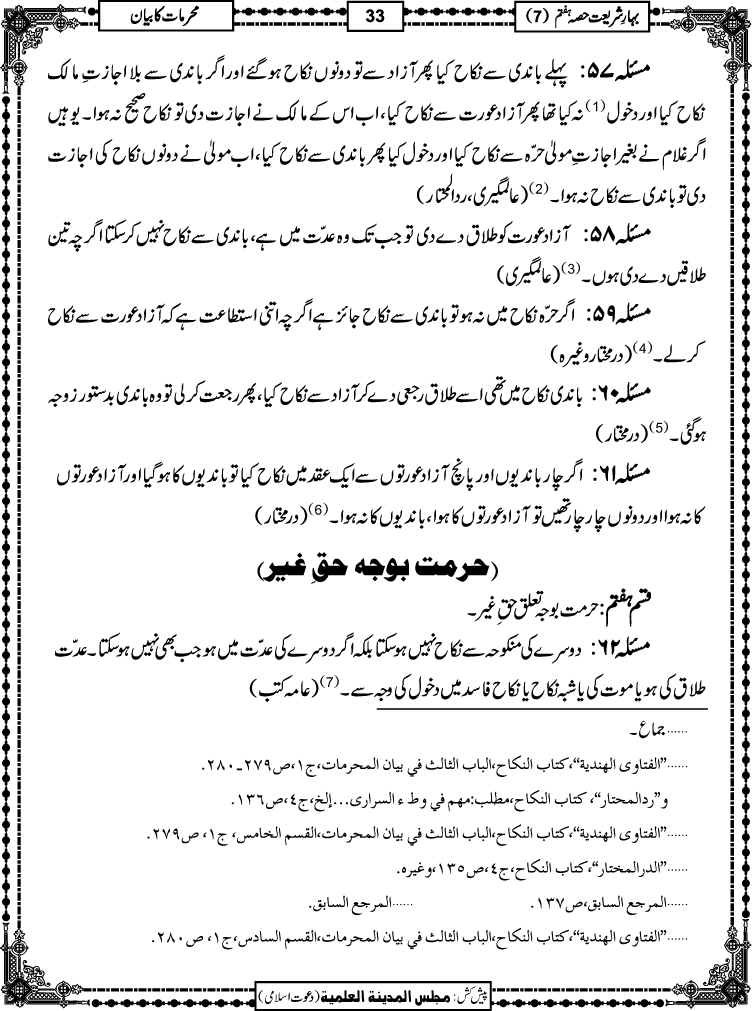 بہارِشریعت حصہ ہفتم (7)
33
محرمات کا بیان
مسئلہ ۵۷: پہلے باندی سے نکاح کیا پھر آزاد سے تو دونوں نکاح ہوگئے اور اگر باندی سے بلا اجازتِ مالک
نکاح کیا اور دخول (1) نہ کیا تھا پھر آزاد عورت سے نکاح کیا، اب اس کے مالک نے اجازت دی تو نکاح صحیح نہ ہوا۔ یوہیں
اگر غلام نے بغیر اجازتِ مولیٰ حرّہ سے نکاح کیا اور دخول کیا پھر باندی سے نکاح کیا، اب مولیٰ نے دونوں نکاح کی اجازت
دی تو باندی سے نکاح نہ ہوا۔ (2) (عالمگیری، ردالمحتار)
مسئلہ ۵۸: آزاد عورت کو طلاق دے دی تو جب تک وہ عدّت میں ہے، باندی سے نکاح نہیں کرسکتا اگرچہ تین
طلاقیں دے دی ہوں۔ (3) (عالمگیری)
مسئلہ ۵۹: اگر حرّہ نکاح میں نہ ہو تو باندی سے نکاح جائز ہے اگرچہ اتنی استطاعت ہے کہ آزاد عورت سے نکاح
کرلے۔ (4) (درمختار وغیرہ)
مسئلہ ۶۰: باندی نکاح میں تھی اسے طلاق رجعی دے کر آزاد سے نکاح کیا، پھر رجعت کرلی تو وہ باندی بدستور زوجہ
ہوگئی۔ (5) (درمختار)
مسئلہ ۶۱: اگر چار باندیوں اور پانچ آزاد عورتوں سے ایک عقد میں نکاح کیا تو باندیوں کا ہوگیا اور آزاد عورتوں
کا نہ ہوا اور دونوں چار چار تھیں تو آزاد عورتوں کا ہوا، باندیوں کا نہ ہوا۔ (6) (درمختار)
(حرمت بوجہ حقِ غیر)
قسم ہفتم: حرمت بوجہ تعلق حقِ غیر۔
مسئلہ ۶۲: دوسرے کی منکوحہ سے نکاح نہیں ہوسکتا بلکہ اگر دوسرے کی عدّت میں ہو جب بھی نہیں ہوسکتا۔ عدّت
طلاق کی ہو یا موت کی یا شبہ نکاح یا نکاح فاسد میں دخول کی وجہ سے۔ (7) (عامہ کتب)
......جماع۔
......”الفتاوی الھندیة“، کتاب النکاح، الباب الثالث في بیان المحرمات، ج۱، ص۲۷۹۔۲۸۰.
و”ردالمحتار“، کتاب النکاح، مطلب: مھم في وطء السراری...إلخ، ج٤، ص۱۳٦.
......”الفتاوی الھندیة“، کتاب النکاح، الباب الثالث في بیان المحرمات، القسم الخامس، ج۱، ص۲۷۹.
......”الدرالمختار“، کتاب النکاح، ج٤، ص۱۳٥، وغیرہ.
......المرجع السابق، ص۱۳۷. ......المرجع السابق.
......”الفتاوی الھندیة“، کتاب النکاح، الباب الثالث في بیان المحرمات، القسم السادس، ج۱، ص۲۸۰.
پیش کش: مجلس المدینة العلمیة (دعوت اسلامی)